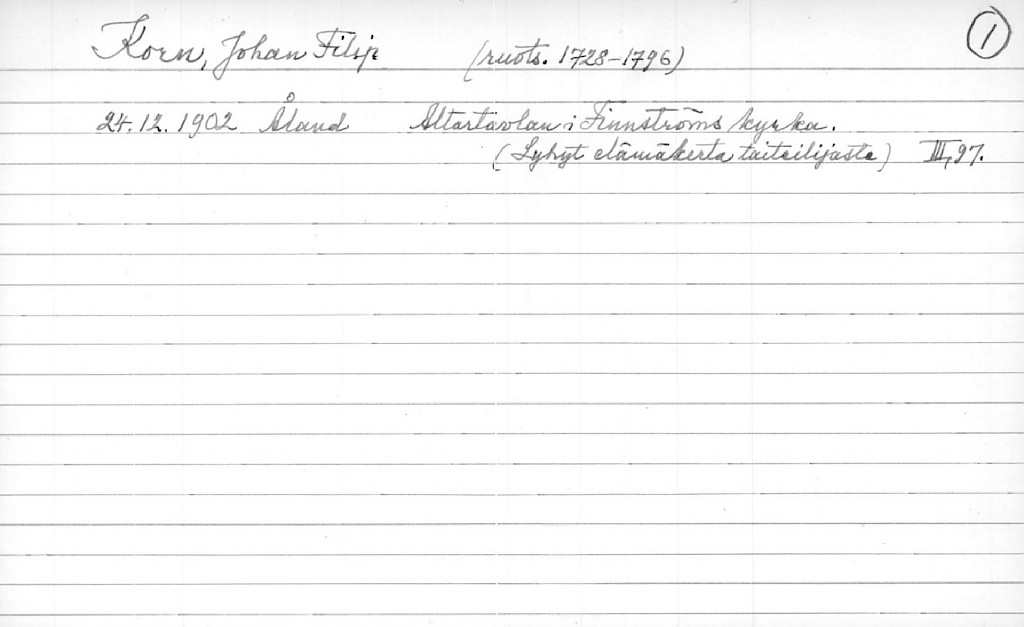 Korn, Johan Filip (ruots. 1728-1796) 1
24.12.1902 Åland Altartavlan i Finnströms kyrka.
(Lyhyt elämäkerta taiteilijasta) III, 97.